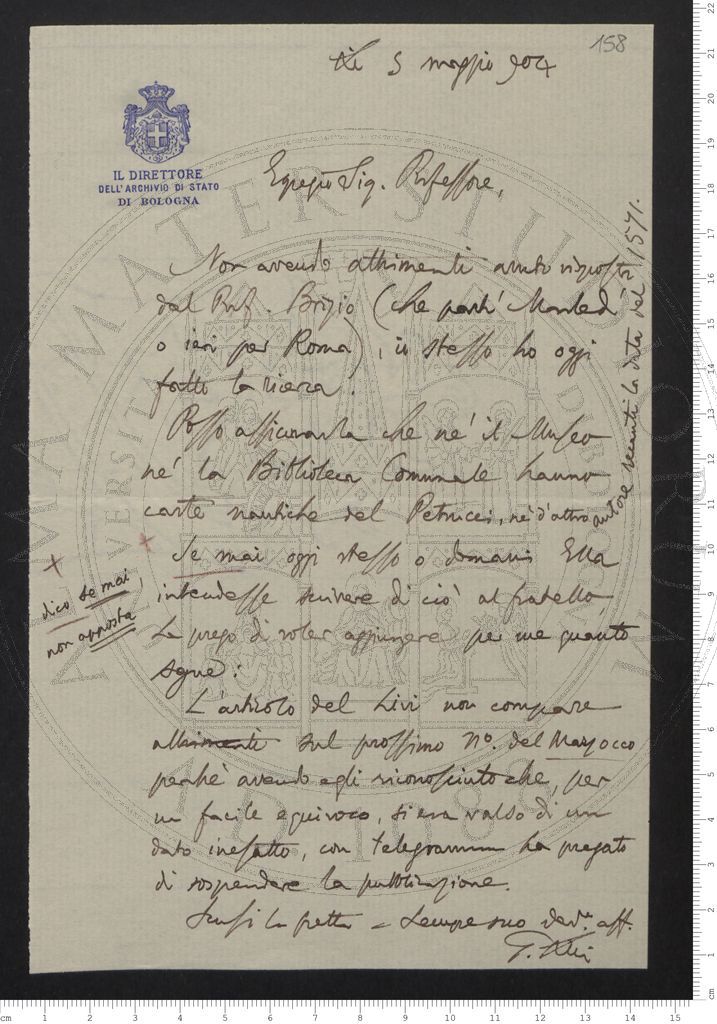 158
5 maggio 904
IL DIRETTORE
DELL'ARCHIVIO DI STATO
DI BOLOGNA
Egregio Sig. Professore,
Non avendo altrimenti avuto risposta
dal Prof. Brizio (che partì Marted
o ieri per Roma), io stesso ho oggi
fatto la ricerca.
Posso assicurarla che nè il Museo
nè la Biblioteca Comunale hanno
carte nautiche del Petrucci, nè d'altro
autore recanti la data del 1571.
Se mai oggi stesso o domani Ella
intendesse scrivere di ciò al fratello,
La prego di voler aggiungere per me quanto
segue:
dico se mai,
non apposta
L'articolo del Livi non compare
altrimenti sul prossimo No. del Marzocco
perchè avendo egli riconosciuto che, per
un facile equivoco, si era valso di un
dato inesatto, con telegramma ha pregato
di sospendere la pubblicazione.
Scusi la fretta = Sempre suo dev. aff.
Livi